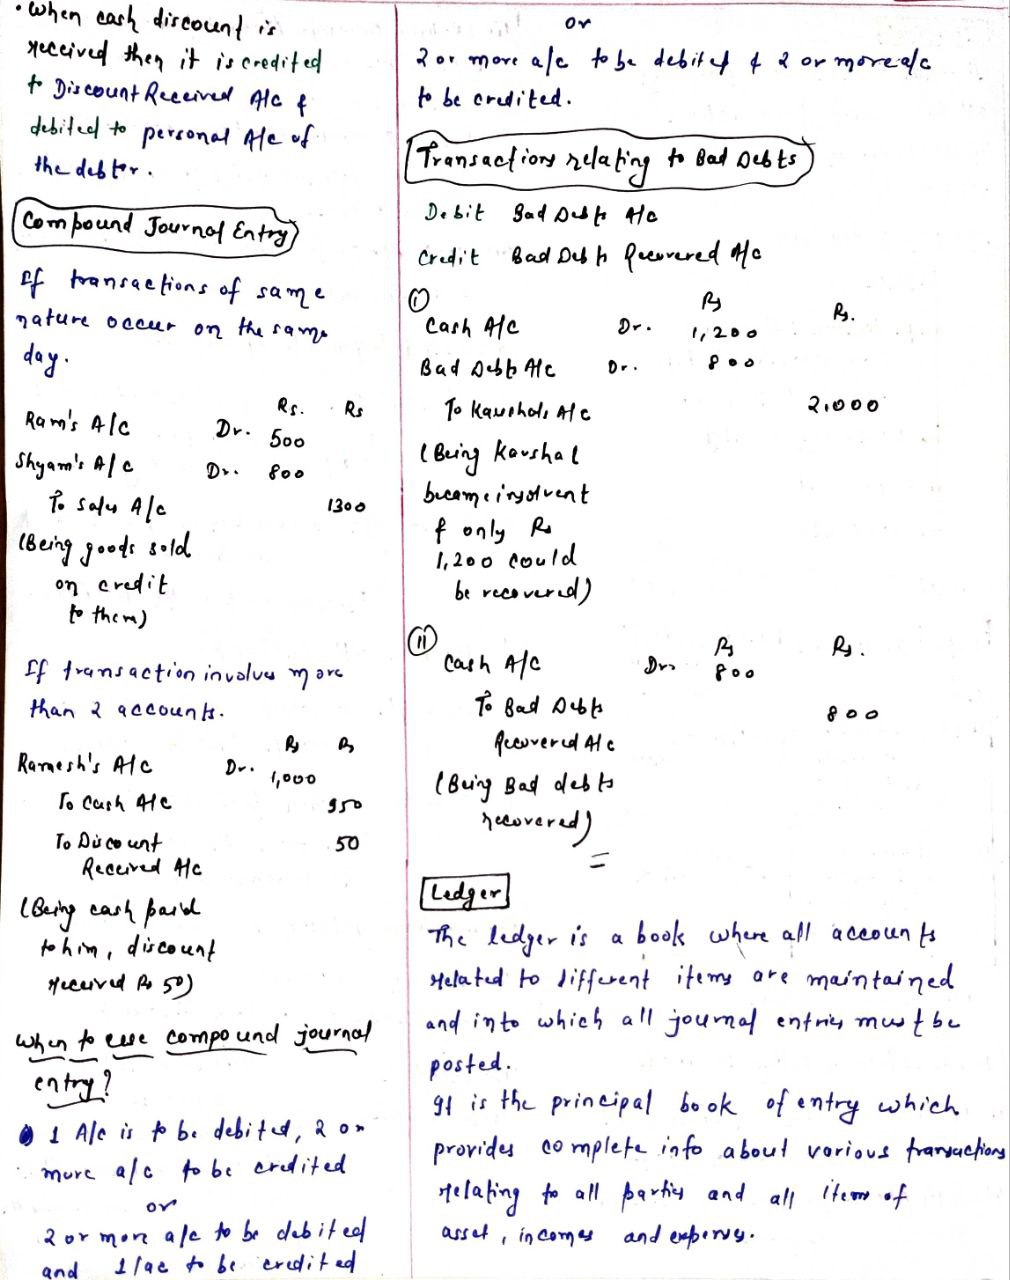 • When cash discount is
received then it is credited
to Discount Received A/c &
debited to personal A/c of
the debtor.
Compound Journal Entry
If transactions of same
nature occur on the same
day.
Rs. Rs
Ram's A/C Dr. 500
Shyam's A/C Dr. 800
To Sales A/c 1300
(Being goods sold
on credit
to them)
If transaction involves more
than 2 accounts.
Rs Rs
Ramesh's A/c Dr. 1,000
To Cash A/c 950
To Discount 50
Received A/c
(Being cash paid
to him, discount
received Rs 50)
When to use compound journal
entry?
• 1 A/c is to be debited, 2 or
more a/c to be credited
or
2 or more a/c to be debited
and 1/ac to be credited
or
2 or more a/c to be debited & 2 or more a/c
to be credited.
Transactions relating to Bad Debts
Debit Bad Debts A/c
Credit Bad Debts Recovered A/c
(i)
Rs Rs.
Cash A/c Dr. 1,200
Bad Debts A/c Dr. 800
To Kaushals A/c 2,000
(Being Kaushal
became insolvent
& only Rs
1,200 could
be recovered)
(ii)
Rs Rs.
Cash A/c Dr. 800
To Bad Debts 800
Recovered A/c
(Being Bad debts
recovered)
Ledger
The ledger is a book where all accounts
related to different items are maintained
and into which all journal entries must be
posted.
It is the principal book of entry which
provides complete info about various transactions
relating to all parties and all item of
asset, incomes and expenses.